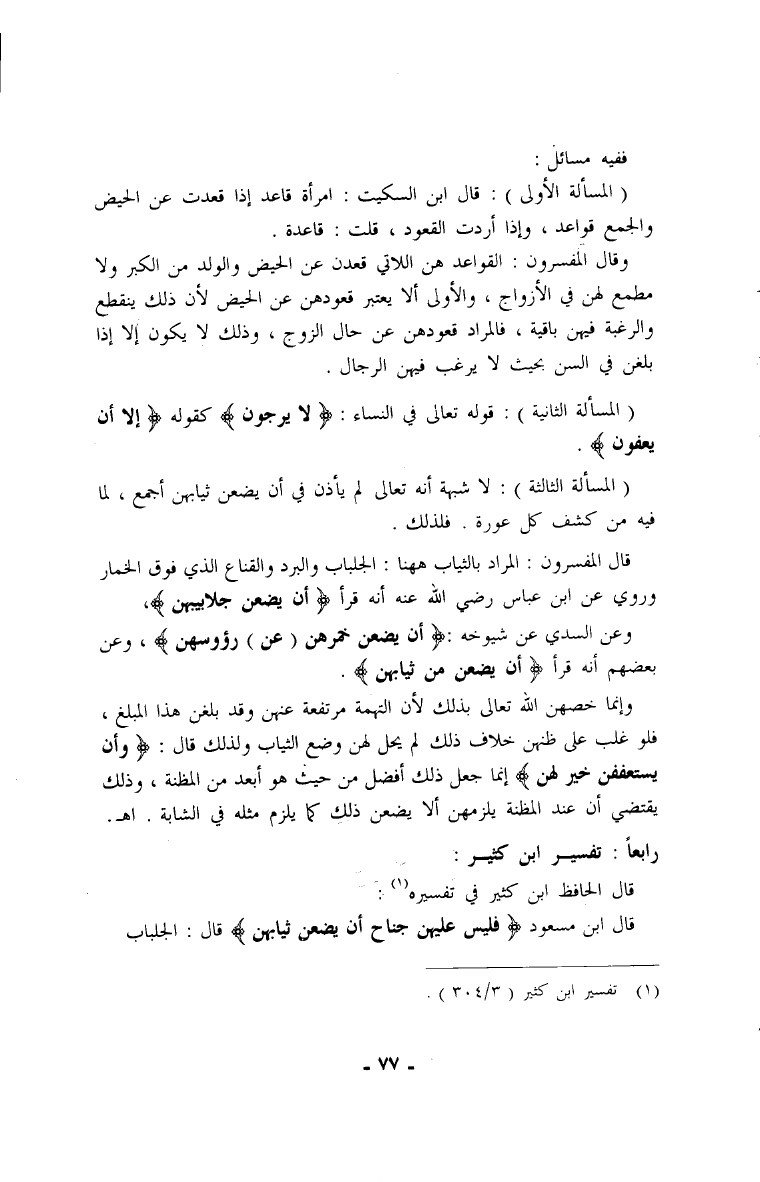 ففيه مسائل :
( المسألة الأولى ) : قال ابن السكيت : امرأة قاعد إذا قعدت عن الحيض
والجمع قواعد ، وإذا أردت القعود ، قلت : قاعدة .
وقال المفسرون : القواعد هن اللاتي قعدن عن الحيض والولد من الكبر ولا
مطمع لهن في الأزواج ، والأولى ألا يعتبر قعودهن عن الحيض لأن ذلك ينقطع
والرغبة فيهن باقية ، فالمراد قعودهن عن حال الزوج ، وذلك لا يكون إلا إذا
بلغن في السن بحيث لا يرغب فيهن الرجال .
( المسألة الثانية ) : قوله تعالى في النساء : ﴿ لا يرجون ﴾ كقوله ﴿ إلا أن
يعفون ﴾ .
( المسألة الثالثة ) : لا شبهة أنه تعالى لم يأذن في أن يضعن ثيابهن أجمع ، لما
فيه من كشف كل عورة . فلذلك .
قال المفسرون : المراد بالثياب ههنا : الجلباب والبرد والقناع الذي فوق الخمار
وروي عن ابن عباس رضي الله عنه أنه قرأ ﴿ أن يضعن جلابيبهن ﴾،
وعن السدي عن شيوخه :﴿ أن يضعن خمرهن ( عن ) رؤوسهن ﴾ ، وعن
بعضهم أنه قرأ ﴿ أن يضعن من ثيابهن ﴾ .
وإنما خصهن الله تعالى بذلك لأن التهمة مرتفعة عنهن وقد بلغن هذا المبلغ ،
فلو غلب على ظنهن خلاف ذلك لم يحل لهن وضع الثياب ولذلك قال : ﴿ وأن
يستعففن خير لهن ﴾ إنما جعل ذلك أفضل من حيث هو أبعد من المظنة ، وذلك
يقتضي أن عند المظنة يلزمهن ألا يضعن ذلك كما يلزم مثله في الشابة . اهـ.
رابعاً : تفسير ابن كثير :
قال الحافظ ابن كثير في تفسيره(١) :
قال ابن مسعود ﴿ فليس عليهن جناح أن يضعن ثيابهن ﴾ قال : الجلباب
(١) تفسير ابن كثير ( ٣٠٤/٣ ) .
- ٧٧ -